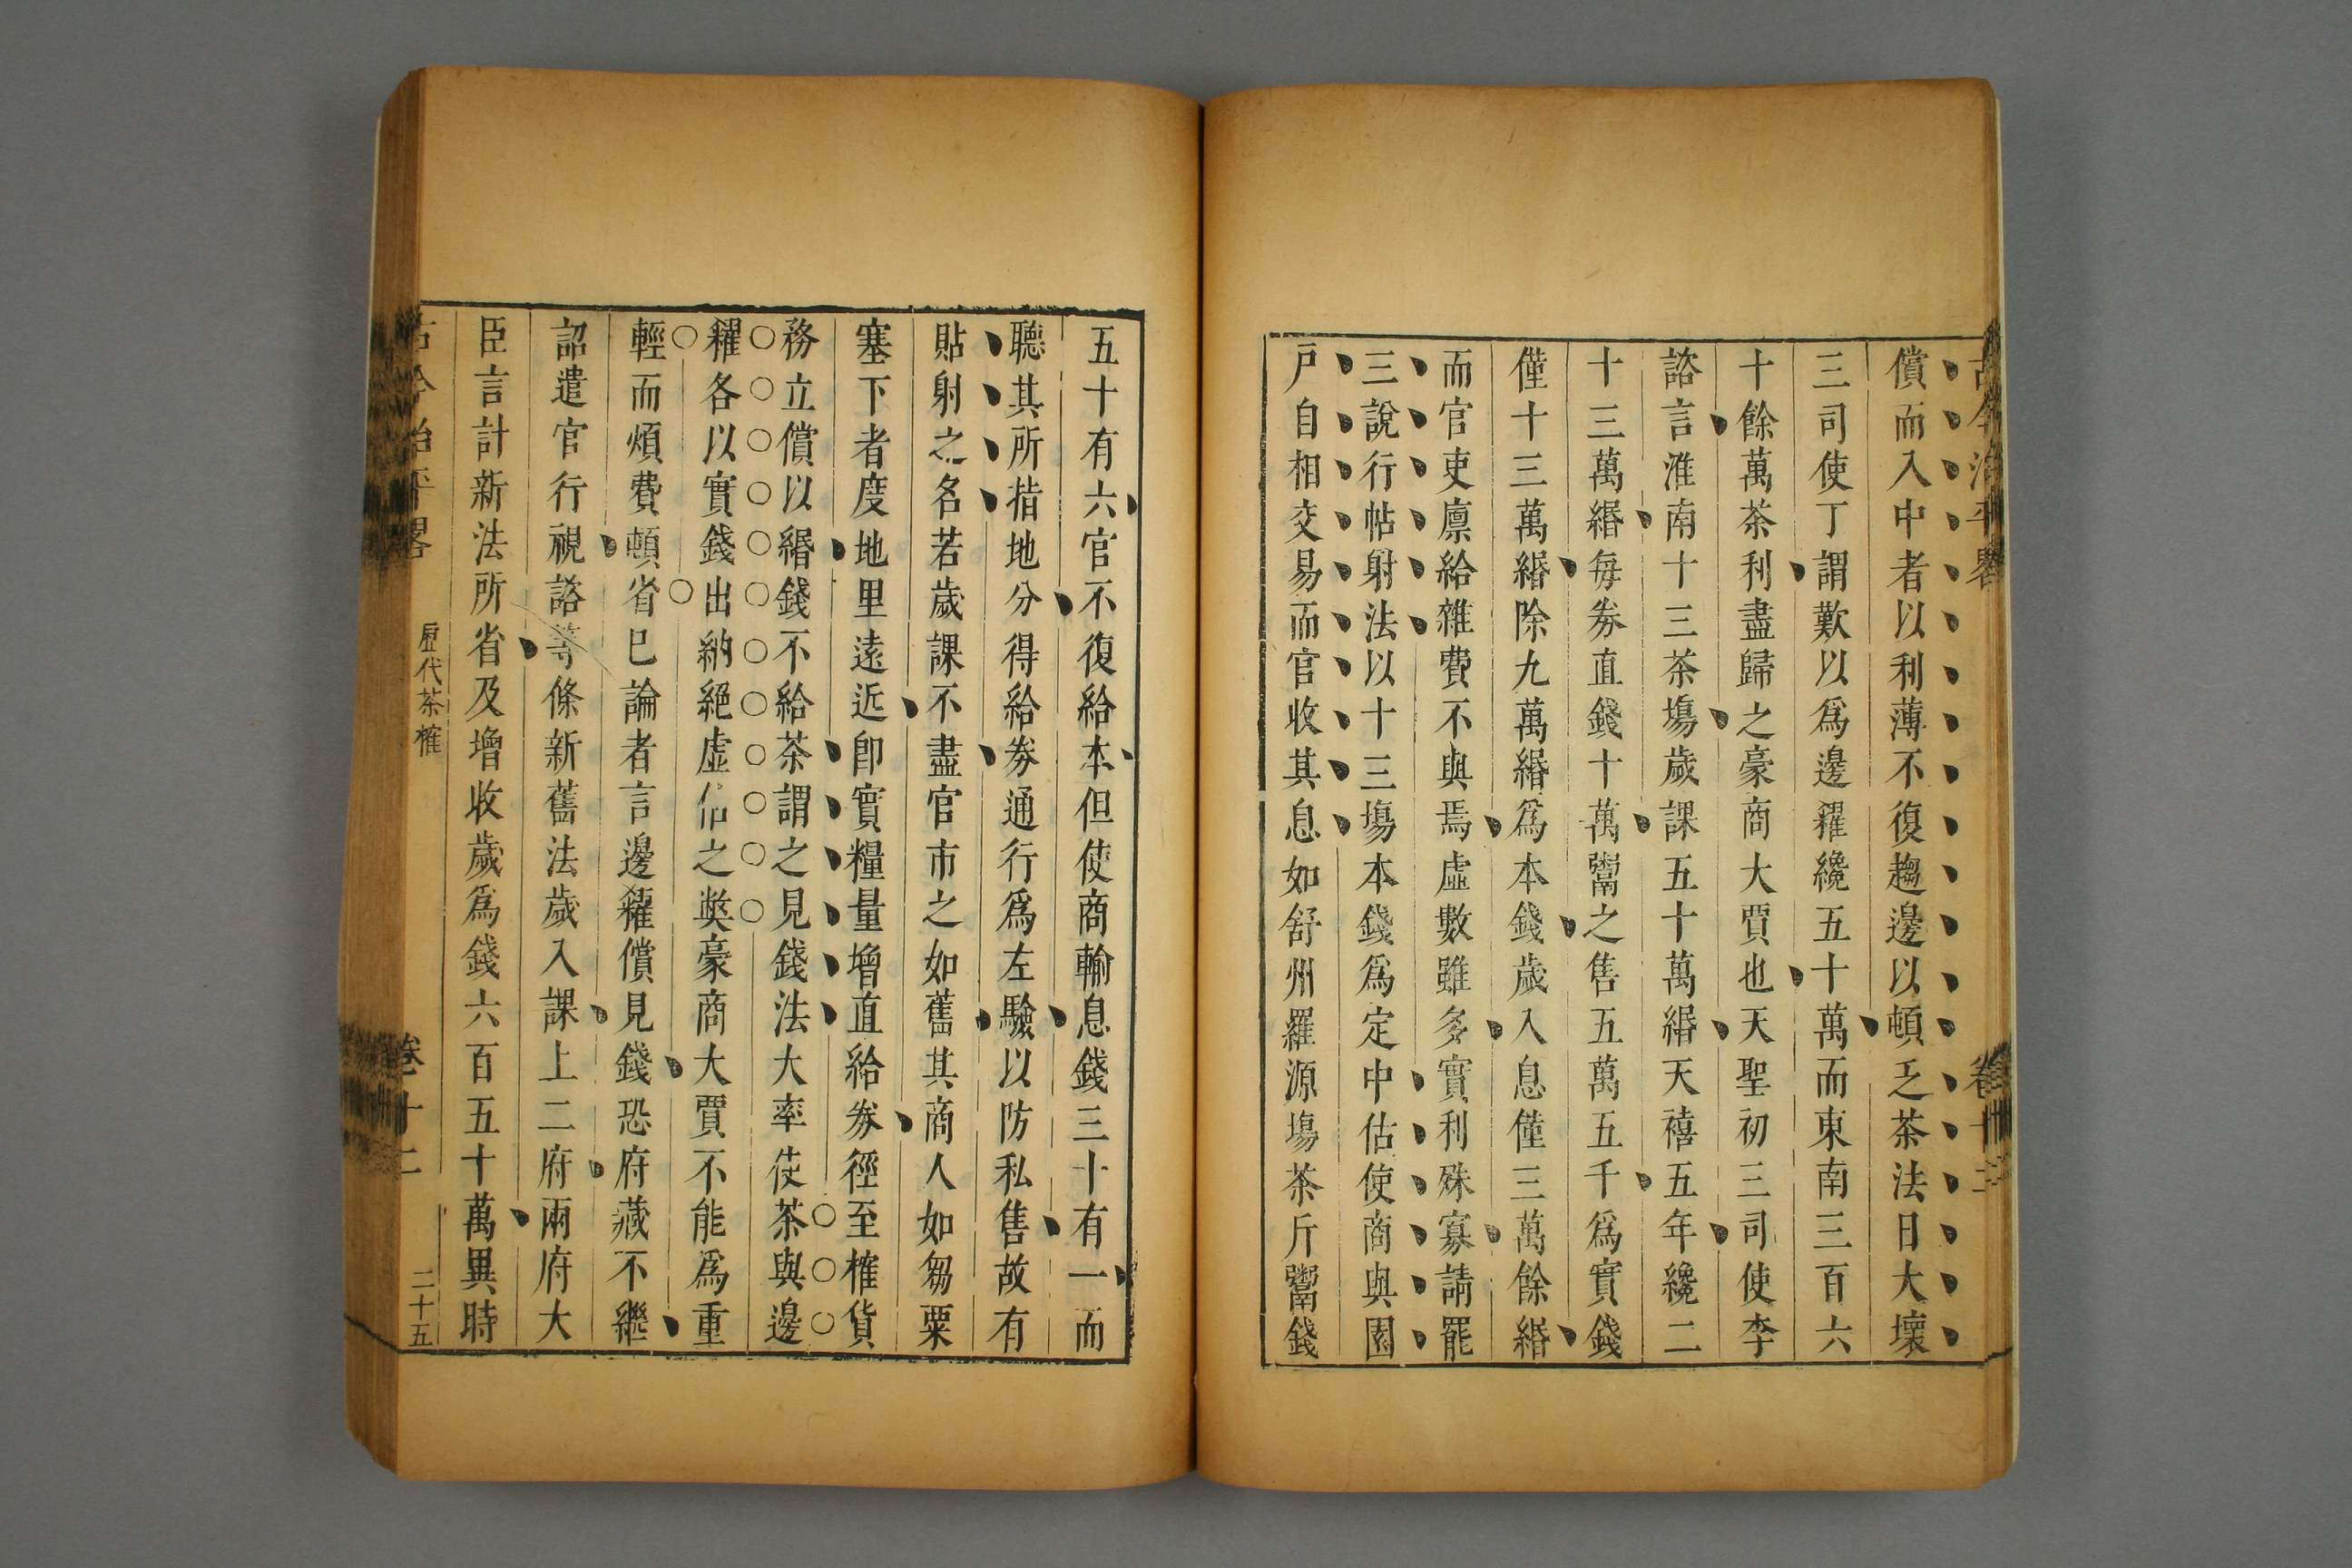 古今治平畧 卷十二
償而入中者以利薄不復趨邊以頓乏茶法日大壞
三司使丁謂歎以爲邊糴纔五十萬而東南三百六
十餘萬茶利盡歸之豪商大賈也天聖初三司使李
諮言淮南十三茶塲歲課五十萬緡天禧五年纔二
十三萬緡每劵直錢十萬鬻之售五萬五千爲實錢
僅十三萬緡除九萬緡爲本錢歲入息僅三萬餘緡
而官吏廪給雜費不與焉虛數雖多實利殊寡請罷
三說行帖射法以十三塲本錢爲定中估使商與園
戸自相交易而官收其息如舒州羅源塲茶斤鬻錢
五十有六官不復給本但使商輸息錢三十有一而
聽其所指地分得給劵通行爲左驗以防私售故有
貼射之名若歲課不盡官市之如舊其商人如芻粟
塞下者度地里遠近卽實糧量增直給劵徑至榷貨
務立償以緡錢不給茶謂之見錢法大率使茶與邊
糴各以實錢出納絕虛估之獘豪商大賈不能爲重
輕而煩費頓省已論者言邊糴償見錢恐府藏不繼
詔遣官行視諮等條新舊法歲入課上二府兩府大
臣言計新法所省及增收歲爲錢六百五十萬異時
古今治平畧 歷代茶榷 卷十二 二十五